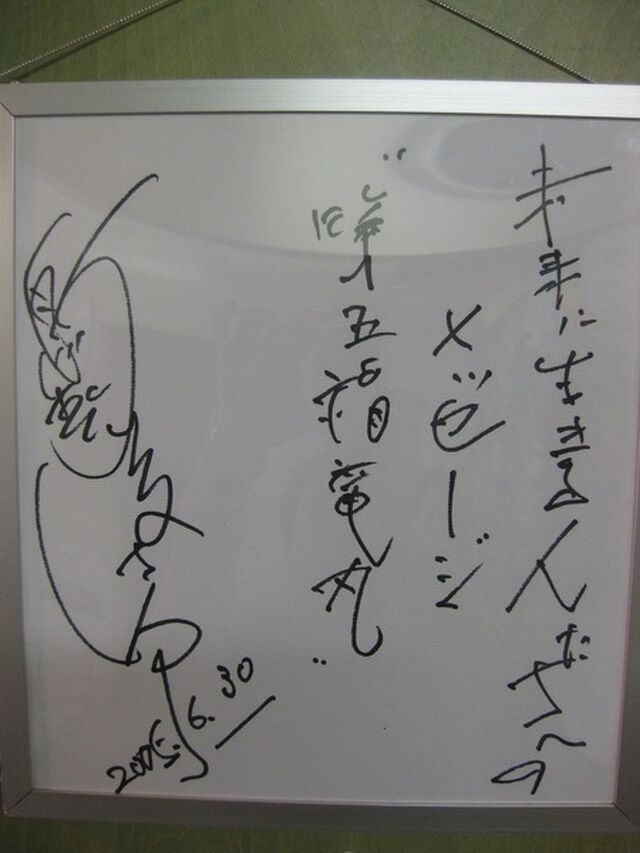 未来に生きる人たちへの
メッセージ
"第五福竜丸"
2005.6.30